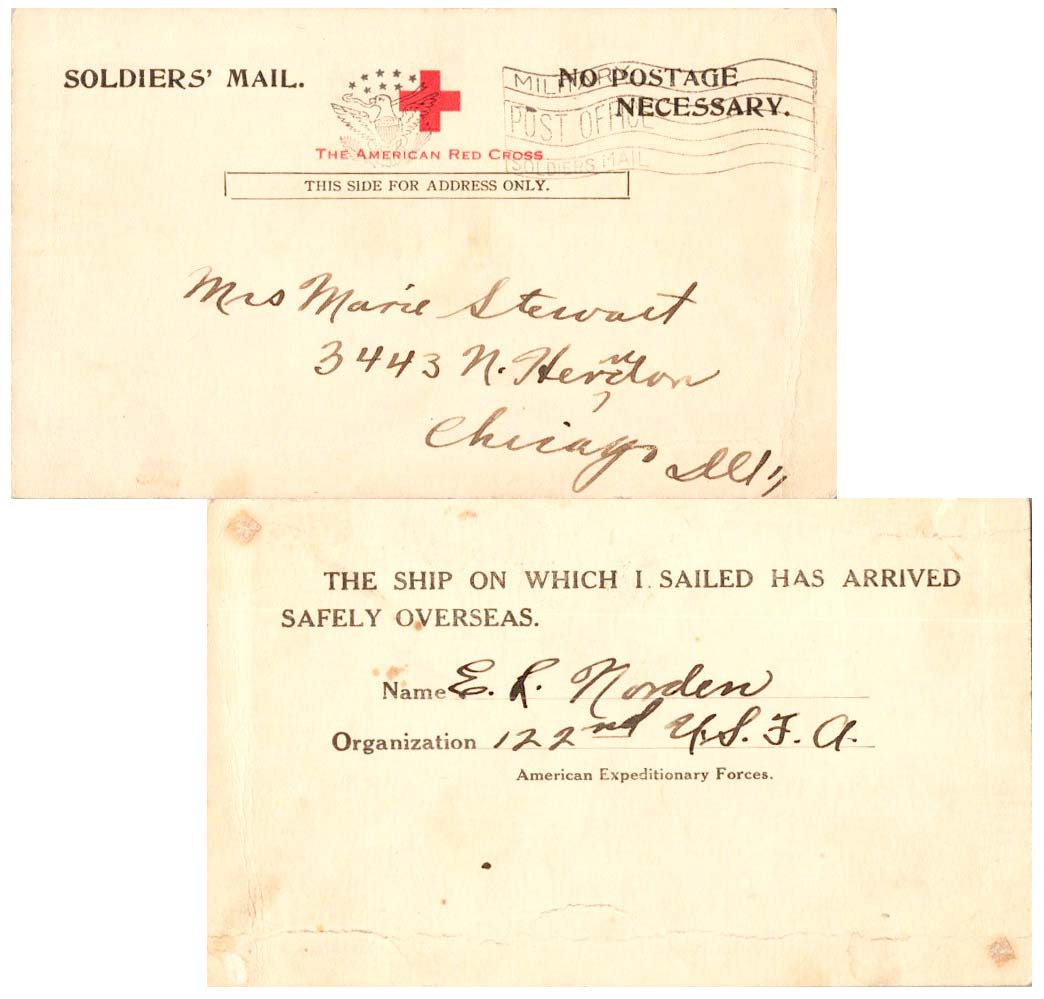 SOLDIERS' MAIL.
NO POSTAGE
NECESSARY.
MILITARY
POST OFFICE
SOLDIERS MAIL
THE AMERICAN RED CROSS
THIS SIDE FOR ADDRESS ONLY.
Mrs Marie Stewart
3443 N. Herndon
Chicago Ill
THE SHIP ON WHICH I SAILED HAS ARRIVED
SAFELY OVERSEAS.
Name E. L. Norden
Organization 122nd U.S.F.A.
American Expeditionary Forces.